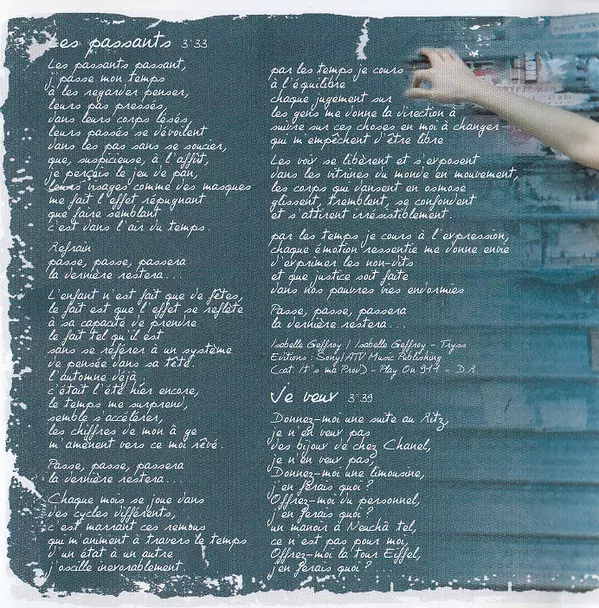 Les passants 3'33
Les passants passant,
j'passe mon temps
à les regarder penser,
leurs pas pressés,
dans leurs corps lésés,
leurs passés se dévoilent
dans les pas sans se soucier,
que, suspicieuse, à l'affût,
je perçois le jeu de pan,
leurs visages comme des masques
me fait l'effet répugnant
que faire semblant
c'est dans l'air du temps.
Refrain
passe, passe, passera
la dernière restera...
L'enfant n'est fait que de fêtes,
le fait est que l'effet se reflète
à sa capacité de prendre
le fait tel qu'il est
sans se référer à un système
de pensée dans sa tête.
l'automne déjà,
c'était l'été hier encore,
le temps me surprend,
semble s'accélérer,
les chiffres de mon â ge
m'amènent vers ce moi rêvé.
Passe, passe, passera
la dernière restera...
Chaque mois se joue dans
des cycles différents,
c'est marrant ces remous
qui m'animent à travers le temps
d'un état à un autre
j'oscille inexorablement.
par les temps je cours
à l'équilibre
chaque jugement sur
les gens me donne la direction à
suivre sur ces choses en moi à changer
qui m'empêchent d'être libre
Les voix se libèrent et s'exposent
dans les vitrines du monde en mouvement,
les corps qui dansent en osmose
glissent, tremblent, se confondent
et s'attirent irrésistiblement.
par les temps je cours à l'expression,
chaque émotion ressentie me donne envie
d'exprimer les non-dits
et que justice soit faite
dans nos pauvres vies endormies
Passe, passe, passera
la dernière restera...
Isabelle Geffroy / Isabelle Geffroy - Tryss
Editions : Sony/ATV Music Publishing
(cat. It's ma Prod) - Play On 911 - D.R.
Je veux 3'39
Donnez-moi une suite au Ritz,
je n'en veux pas
des bijoux de chez Chanel,
je n'en veux pas,
Donnez-moi une limousine,
j'en ferais quoi ?
Offrez-moi du personnel,
j'en ferais quoi ?
un manoir à Neuchâ tel,
ce n'est pas pour moi,
Offrez-moi la tour Eiffel,
j'en ferais quoi ?